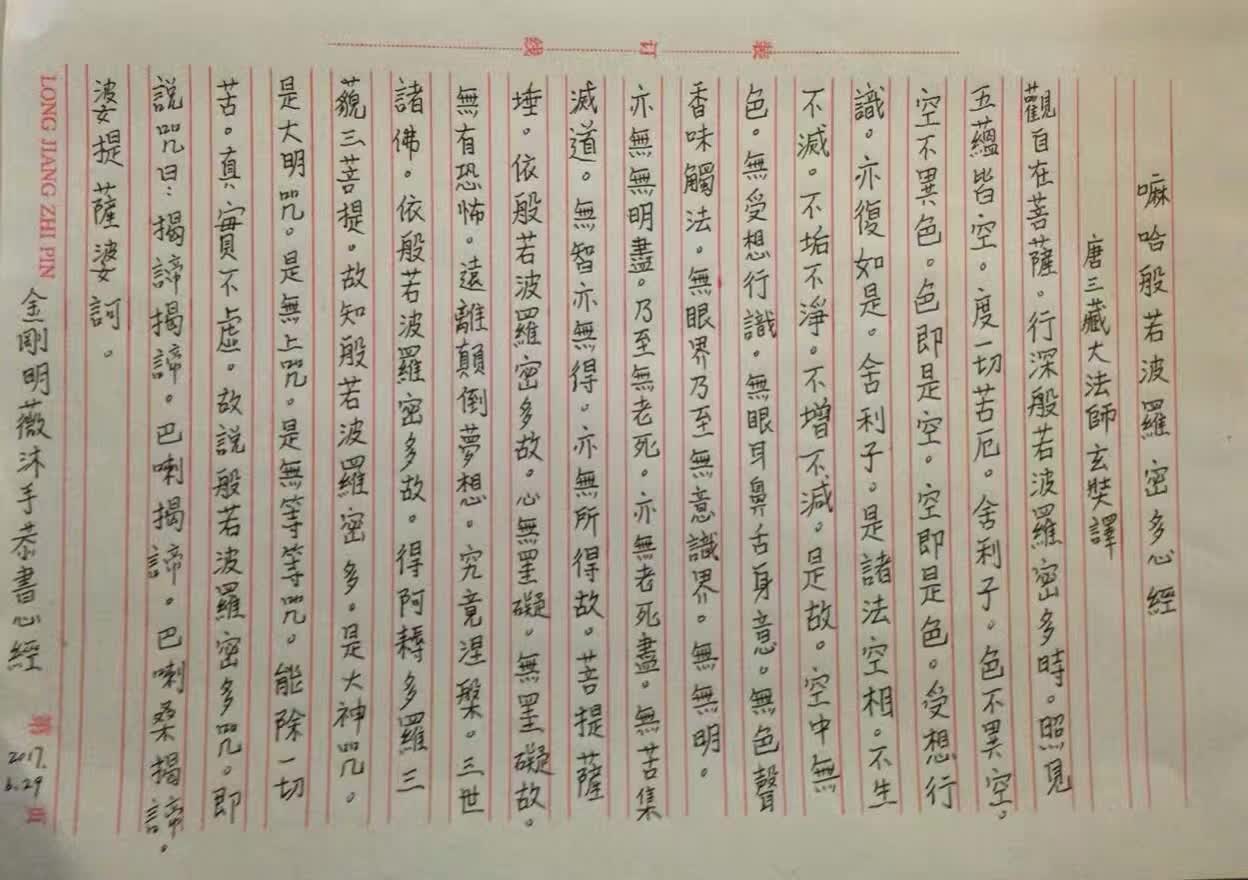 装订线
嘛哈般若波羅密多心經
唐三藏大法師玄奘譯
觀自在菩薩。行深般若波羅密多時。照見
五蘊皆空。度一切苦厄。舍利子。色不異空。
空不異色。色即是空。空即是色。受想行
識。亦復如是。舍利子。是諸法空相。不生
不滅。不垢不淨。不增不減。是故。空中無
色。無受想行識。無眼耳鼻舌身意。無色聲
香味觸法。無眼界乃至無意識界。無無明。
亦無無明盡。乃至無老死。亦無老死盡。無苦集
滅道。無智亦無得。亦無所得故。菩提薩
埵。依般若波羅密多故。心無罣礙。無罣礙故。
無有恐怖。遠離顛倒夢想。究竟涅槃。三世
諸佛。依般若波羅密多故。得阿耨多羅三
藐三菩提。故知般若波羅密多。是大神咒。
是大明咒。是無上咒。是無等等咒。能除一切
苦。真實不虛。故説般若波羅密多咒。即
説咒曰：揭諦揭諦。巴喇揭諦。巴喇桑揭諦。
婆提薩婆訶。
金剛明薇沐手恭書心經
LONG JIANG ZHI PIN
第 页
2017.
6.29